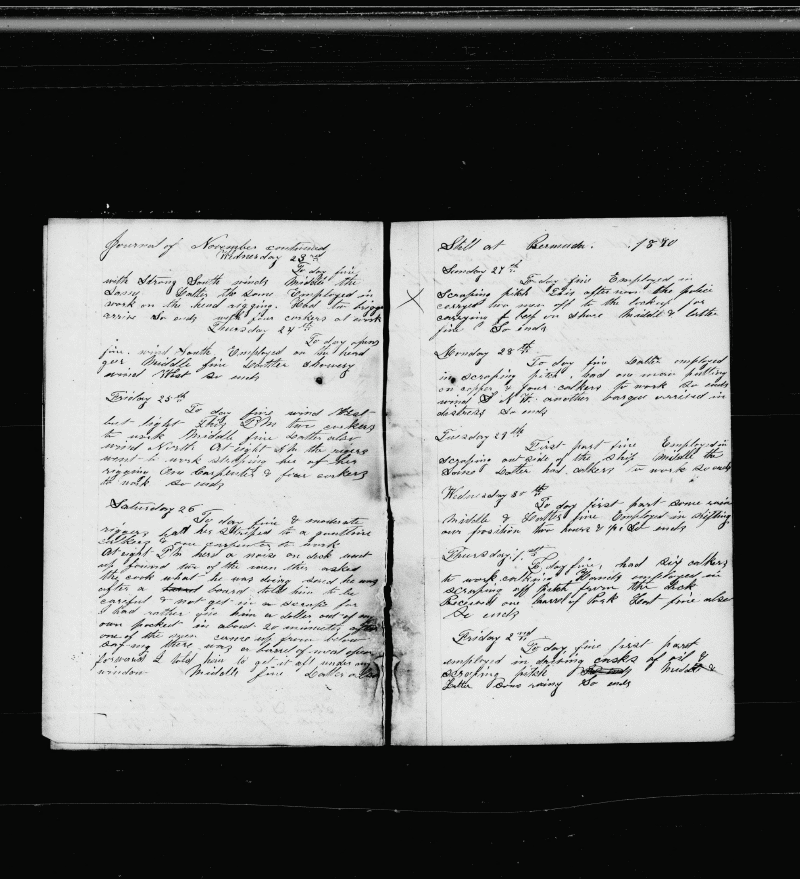 Journal of November continued
Wednesday 23rd
To day fine
with Strong South winds Middle the
Same Latter the Same Employed in
work on the head rigging. Had two
arrive So ends with four corkers at work
Thursday 24th
To day opens
fine wind South Employed on the head
gear Middle fine Latter Showery
wind West So ends
Friday 25th
To day fine wind West
but light This P.M two corkers
to work Middle fine Latter also
wind North At eight A M the rigers
went to work striping her of her
rigging One Carpenter & four corkers
to work So ends
Saturday 26
To day fine & moderate
riggers had her striped to a guntline
calkers & one carpenter to work
At eight P M herd a noise on deck went
up found two of the men thir asked
the cook what he was doing said he was
after a board told him to be
careful & not get in a scrape for
I had rather give him a dollar out of my
own pocket in about 20 minutes after
one of the men came up from below
saying there was a barrel of meat open
forward I told him to get it aft under my
window Middle fine Latter
Still at Bermuda. 1880
Sunday 27th
To day fine Employed in
Scraping pitch This after noon the police
carryed two men off to the lockup for
carrying of beef on shore Middle & latter
fine So ends
Monday 28th
To day fine Latter employed
in scraping pitch, had one man putting
on copper & four calkers to work So ends
wind S N W. another barque arrived in
distress So ends
Tuesday 29th
First part fine Employed in
Scraping out side of the ship Middle the
Same Latter had calkers to work So ends
Wednesday 30th
To day first part some rain
Middle & Latter fine Employed in shifting
our position two hours & So ends
Thursday 1st
To day fine, had six calkers
to work calking Hands employed in
scraping off pitch from the deck
Received one barrel of Pork Beat fine also
So ends
Friday 2nd
To day fine first part
employed in driving casks of oil &
Scraping pitch So ends Middle &
Latter Some rainy So ends